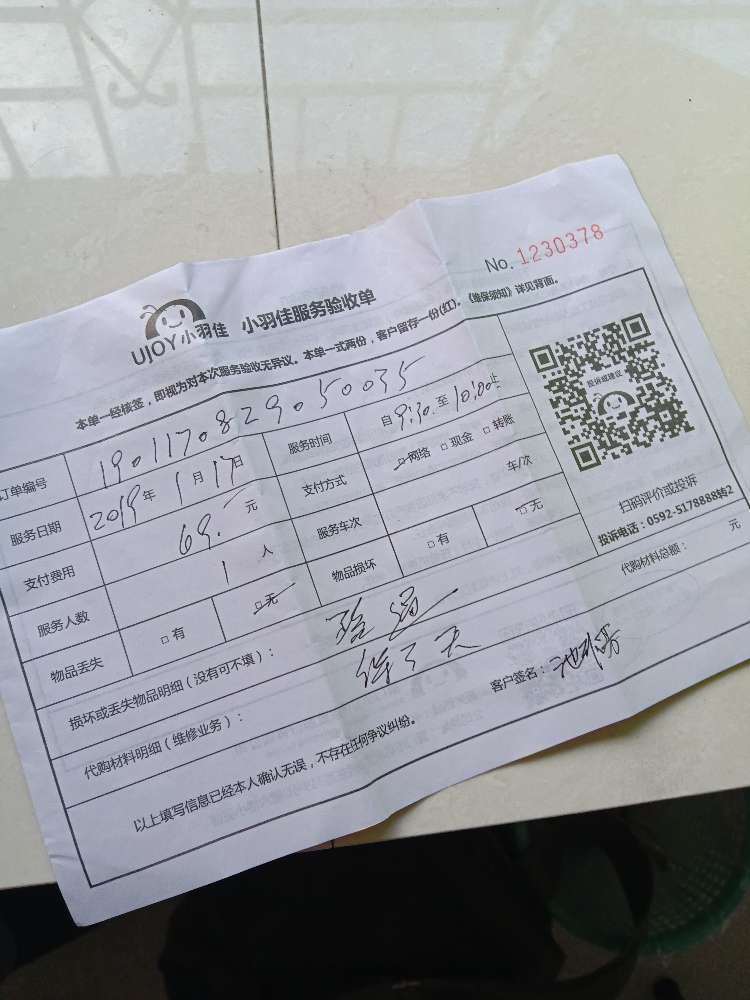 No. 1230378
UJOY小羽佳 小羽佳服务验收单
本单一经核签，即视为对本次服务验收无异议。本单一式两份，客户留存一份(红)。《维保须知》详见背面。
订单编号 190117082950035
服务时间 自9:30至10:00止
服务日期 2019年1月17日
支付方式 □网络 □现金 □转账
支付费用 69.一元
服务车次 车/次
服务人数 1人
物品损坏 □有 □无
物品丢失 □有 □无
投诉或建议
扫码评价或投诉
投诉电话：0592-5178888转2
损坏或丢失物品明细（没有可不填）：
代购材料明细（维修业务）：
代购材料总额： 元
以上填写信息已经本人确认无误，不存在任何争议纠纷。
客户签名：